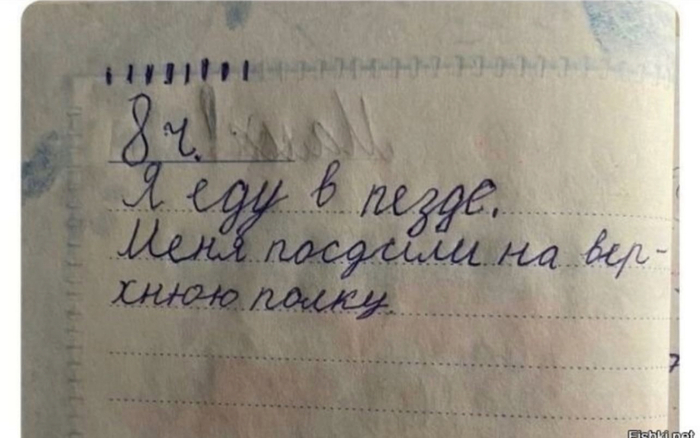 8 ч.
Я еду в пезде.
Меня посдили на вер-
хнюю полку.
Fishki.net